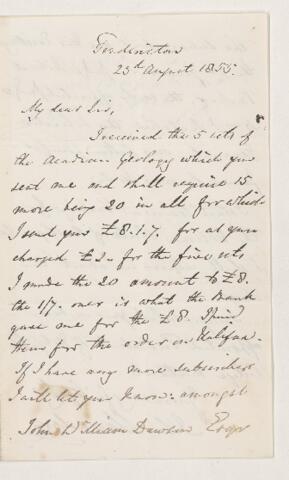 23rd August 1855.
My dear Sir,
I received the 5 sets of
the Acadian Geology which you
sent me and shall require 15
more being 20 in all for which
I send you £8.1.7. for as you
charged £2 – for the five sets
I made the 20 amount to £8.
the 1/7. over is what the Bank
gave me for the £8. I paid
them for the order on Halifax.
If I have any more subscribers
I will let you know: amongst
John William Dawson Esqr